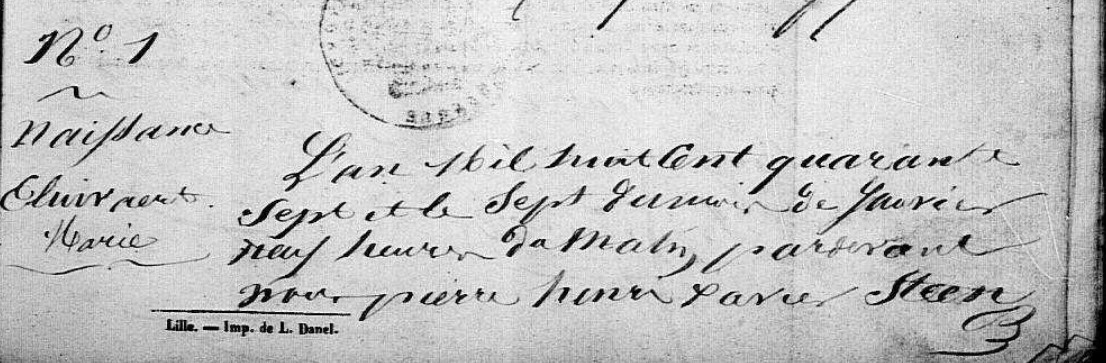 N° 1
Naissance
Cluivaert
Marie
L'an Mil huit Cent quarante
Sept et le Sept du mois de Janvier
neuf heures du Matin, pardevant
nous pierre henri Xavier Steen
Lille. — Imp. de L. Danel.